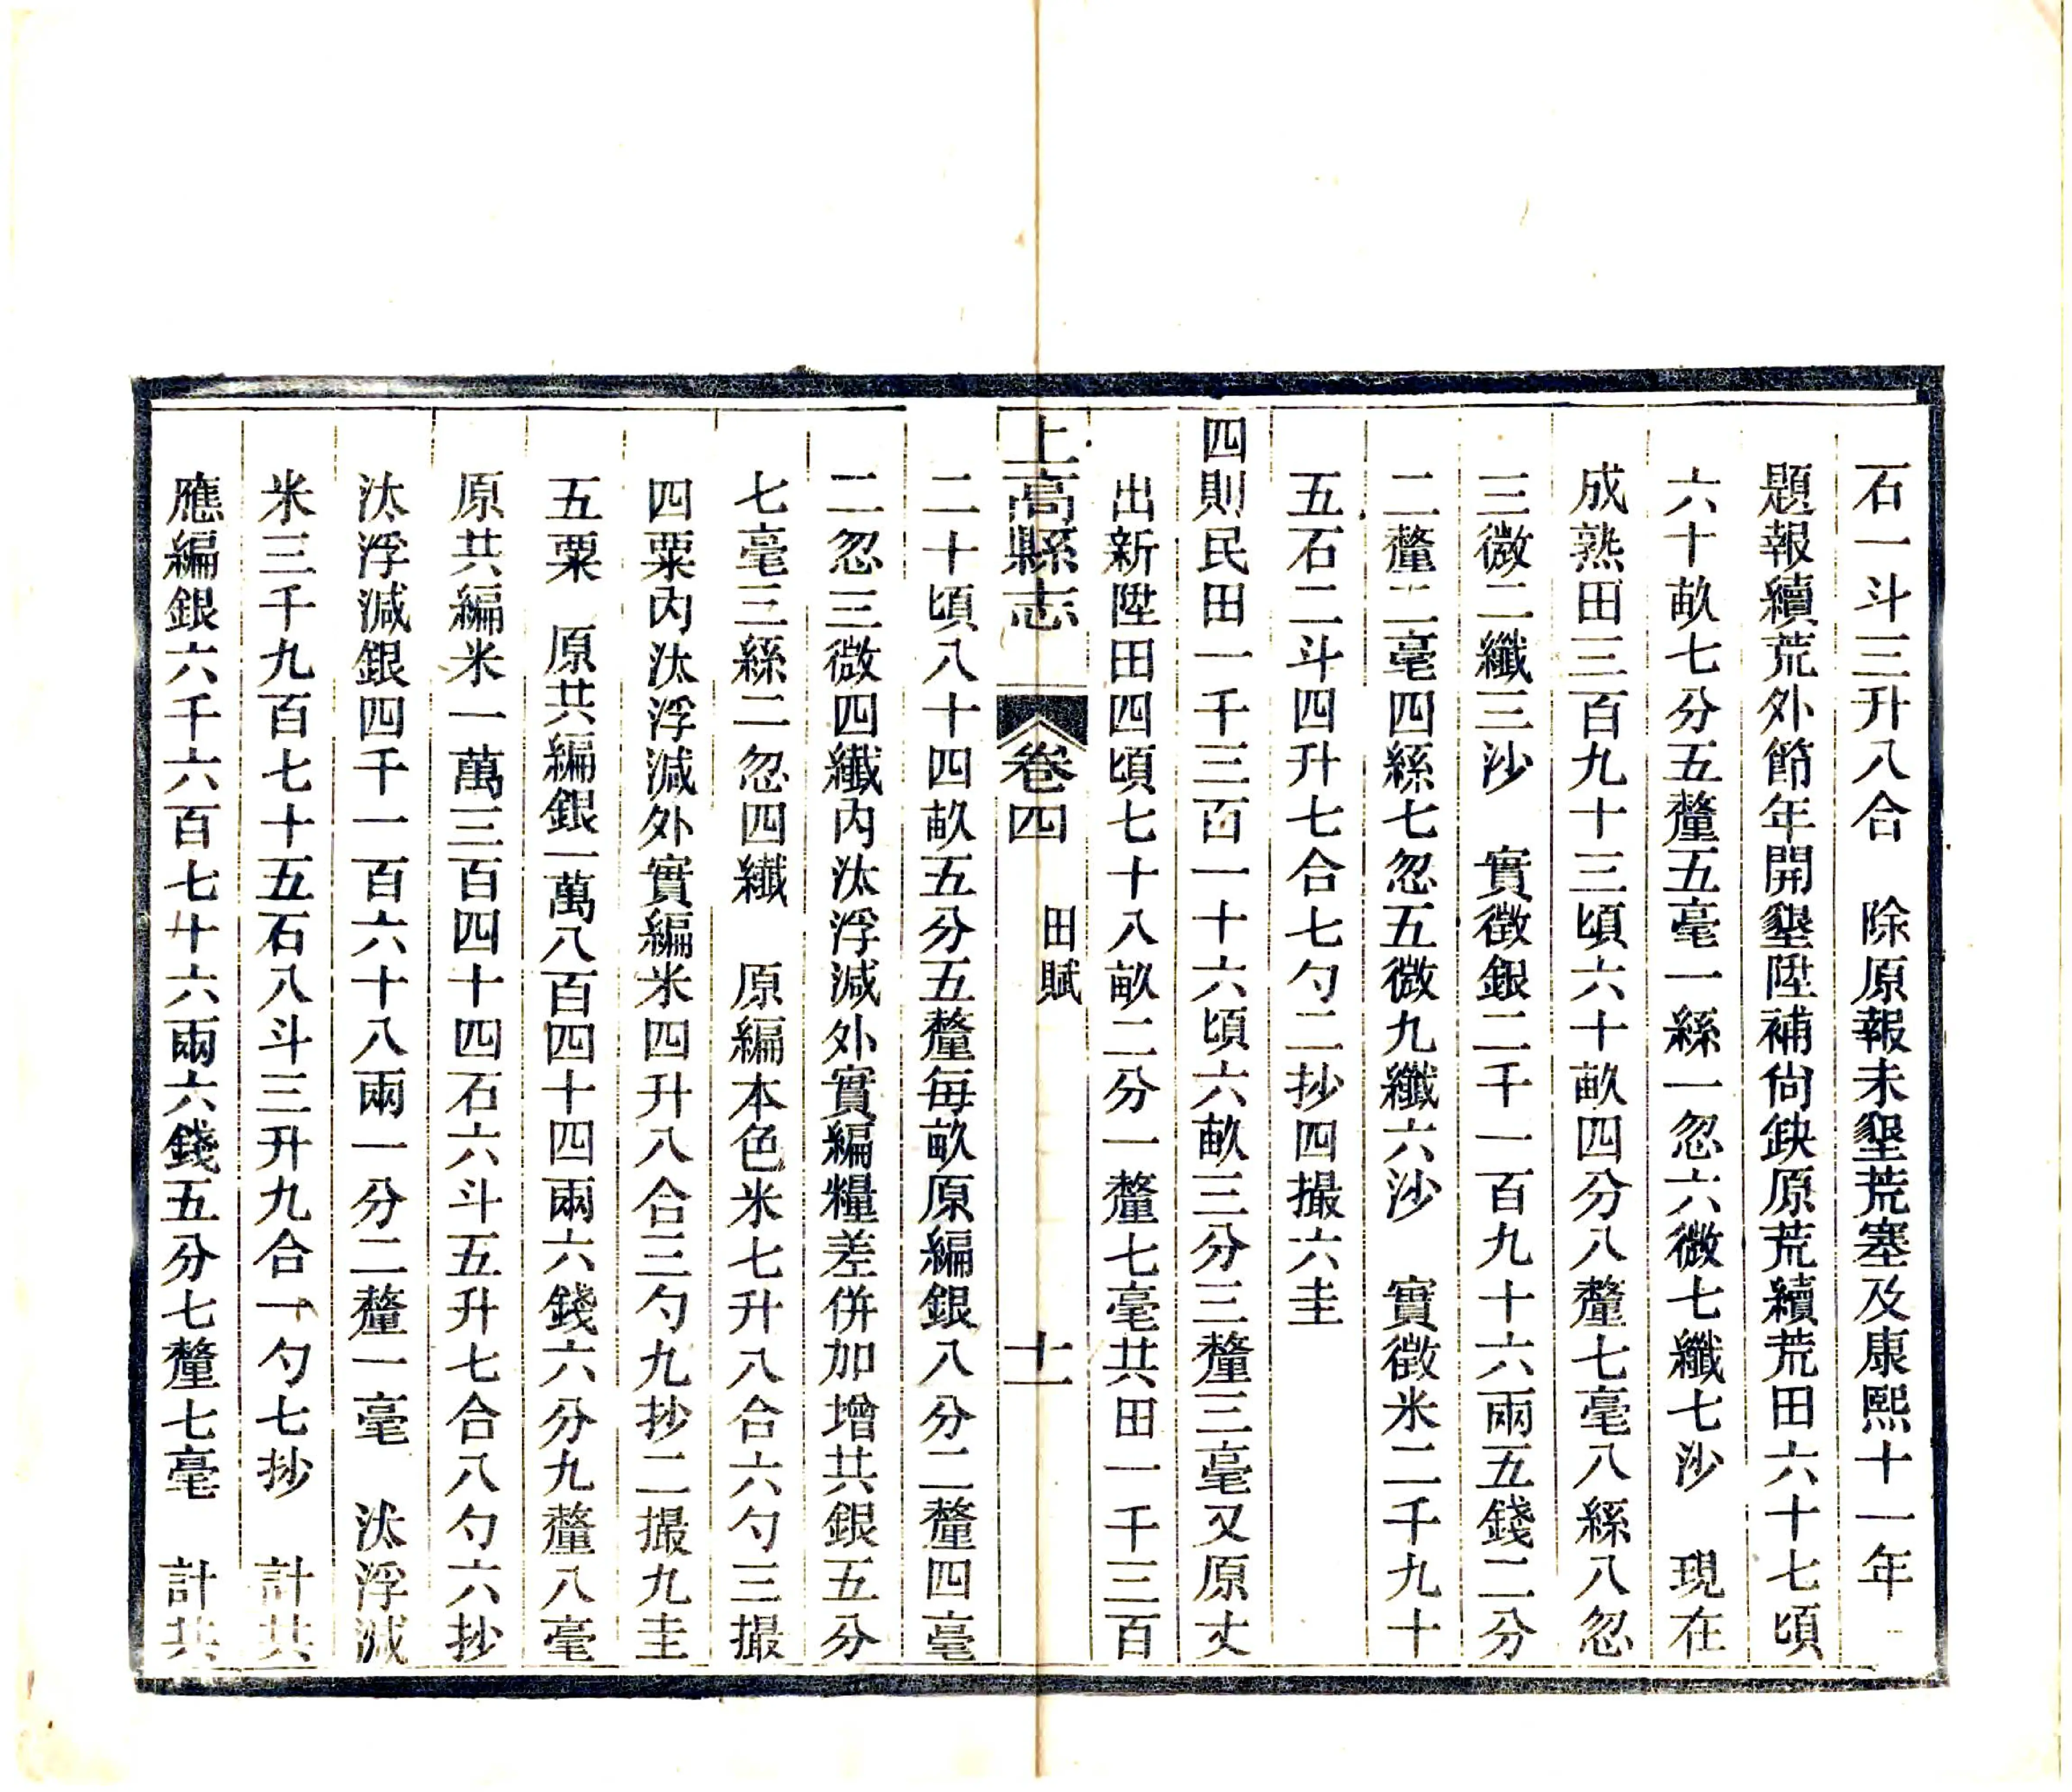 石一斗三升八合　除原報未墾荒塞及康熙十一年
題報續荒外節年開墾陞補尙缺原荒續荒田六十七頃
六十畝七分五釐五毫一絲一忽六微七纖七沙　現在
成熟田三百九十三頃六十畝四分八釐七毫八絲八忽
三微二纖三沙　實徵銀二千一百九十六兩五錢二分
二釐二毫四絲七忽五微九纖六沙　實徵米二千九十
五石二斗四升七合七勺二抄四撮六圭
四則民田一千三百一十六頃六畝三分三釐三毫又原丈
出新陞田四頃七十八畝二分一釐七毫共田一千三百
上高縣志　卷四　田賦　十一
二十頃八十四畝五分五釐每畝原編銀八分二釐四毫
二忽三微四纖內汰浮減外實編糧差併加增共銀五分
七毫三絲二忽四纖　原編本色米七升八合六勺三撮
四粟內汰浮減外實編米四升八合三勺九抄二撮九圭
五粟　原共編銀一萬八百四十四兩六錢六分九釐八毫
原共編米一萬三百四十四石六斗五升七合八勺六抄
汰浮減銀四千一百六十八兩一分二釐一毫　汰浮減
米三千九百七十五石八斗三升九合一勺七抄　計共
應編銀六千六百七十六兩六錢五分七釐七毫　計共